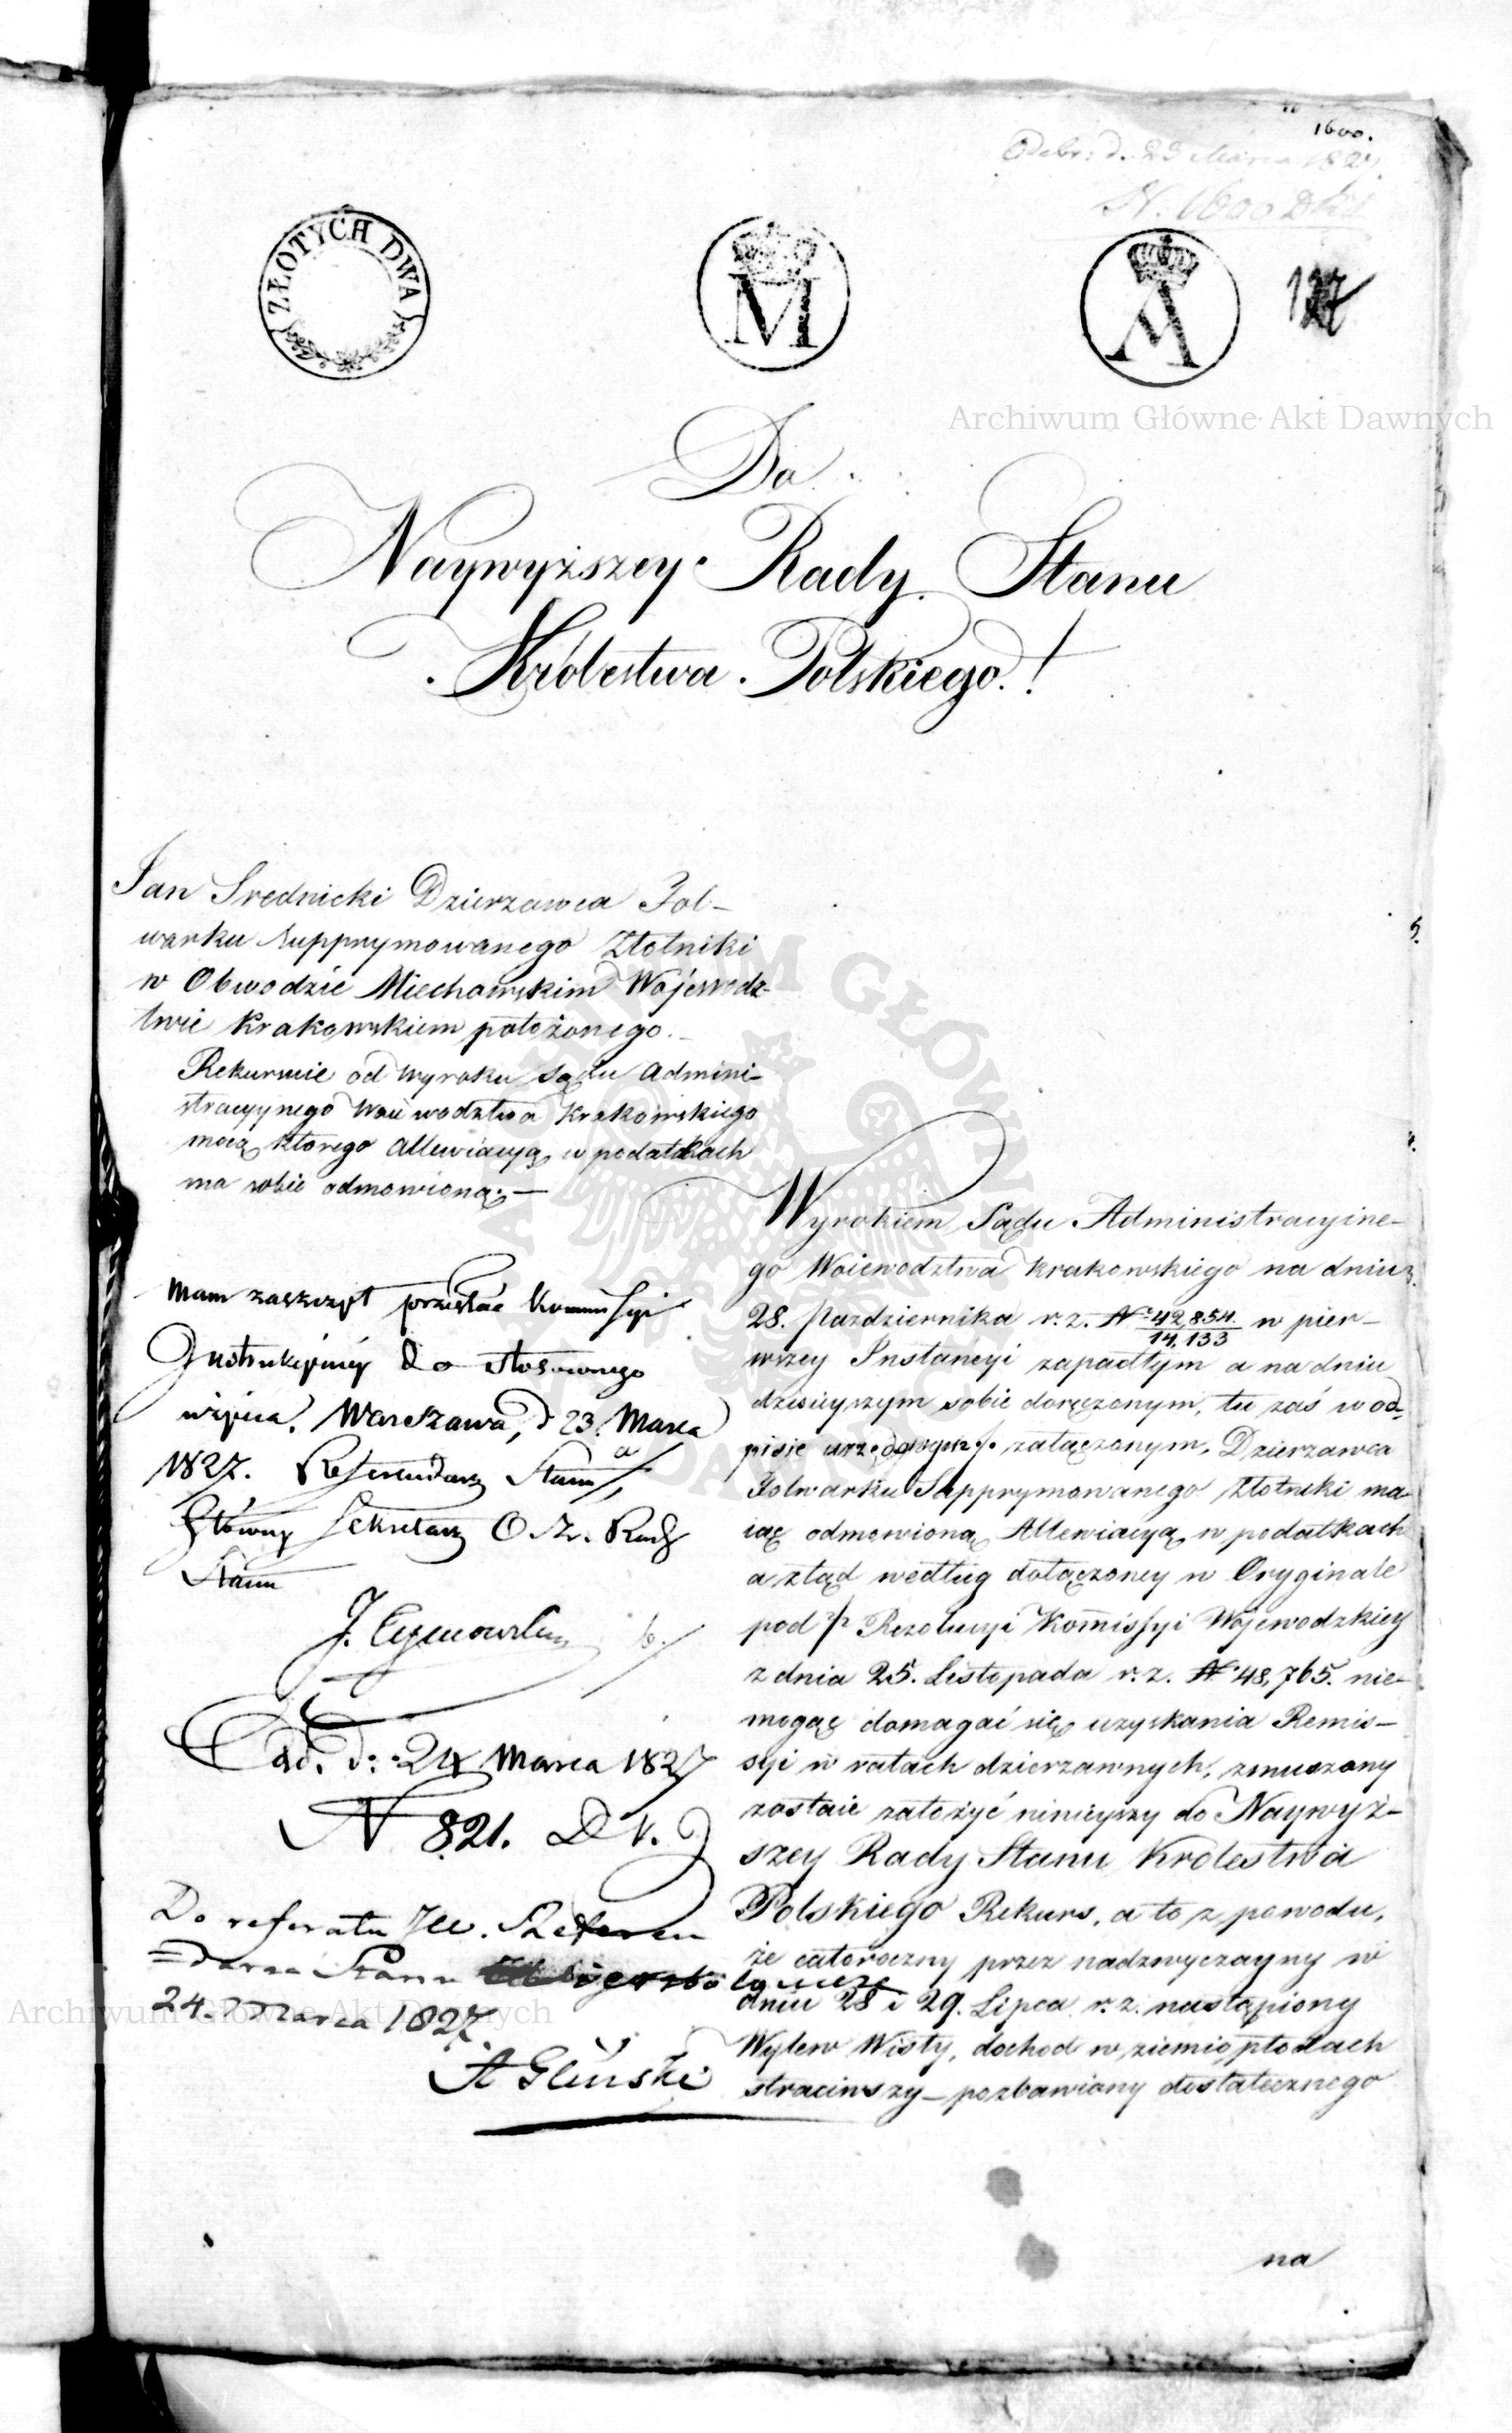 1600.
Odebr: d. 23 Marca 1827.
N. 1600 Dku
ZŁOTYCH DWA
M
A
Archiwum Główne Akt Dawnych
Do
Naywyższey Rady Stanu
Królestwa Polskiego!
Jan Srednicki Dzierzawca Fol-
warku supprymowanego Złotniki
w Obwodzie Miechowskim Wojewodz-
twie Krakowskiem położonego.
Rekursuie od wyroku Sądu Admini-
stracyynego Woiewodztwa Krakowskiego
mocą ktorego allewiacyą w podatkach
ma sobie odmowioną.—
Mam zaszczyt przesłać Kommissyi
Instrukcyiney do stosownego
użycia. Warszawa, d 23. Marca
1827. Referendarz Stanu,
Główny Sekretarz O. Zr. Rady
Stanu
J.
Odd. d: 24 Marca 1827
N 821. D K. J
Do referatu JW. Referen
=darza Stanu
24. Marca 1827.
A Gliński
Wyrokiem Sądu Administracyine-
go Woiewodztwa Krakowskiego na dniu
28. Pazdziernika r. z. N 42,854. 14,133 w pier-
wszey Instancyi zapadłym a na dniu
dzisieyszym sobie doręczonym, tu zaś w od-
pisie urzędowym /. załączonym, Dzierzawca
Folwarku Supprymowanego Złotniki ma-
iąc odmowioną Allewiacyą w podatkach
a ztąd według dołączoney w Oryginale
pod Rezolucyi Komissyi Wojewodzkiey
z dnia 25. Listopada r. z. N 48,765. nie-
mogąc domagać się uzyskania Remis-
syi w ratach dzierzawnych, zmuszony
zostaie założyć ninieyszy do Naywyż-
szey Rady Stanu Krolestwa
Polskiego Rekurs, a to z powodu,
że całoroczny przez nadzwyczayny w
dniu 28 i 29. Lipca r. z. nastąpiony
Wylew Wisły, dochod w ziemiopłodach
straciwszy – pozbawiony dostatecznego
Archiwum Główne Akt Dawnych
na